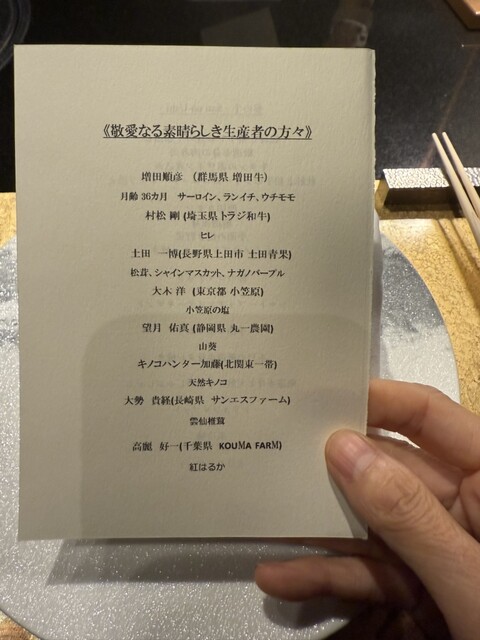 《敬愛なる素晴らしき生産者の方々》
増田順彦 (群馬県 増田牛)
月齢 36カ月 サーロイン、ランイチ、ウチモモ
村松 剛 (埼玉県トラジ和牛)
ヒレ
土田 一博(長野県上田市 土田青果)
松茸、シャインマスカット、ナガノパープル
大木 洋 (東京都 小笠原)
小笠原の塩
望月 佑真 (静岡県 丸一農園)
山葵
キノコハンター加藤(北関東一帯)
天然キノコ
大勢 貴経(長崎県 サンエスファーム)
雲仙椎茸
高麗 好一(千葉県 KOUMA FARM)
紅はるか